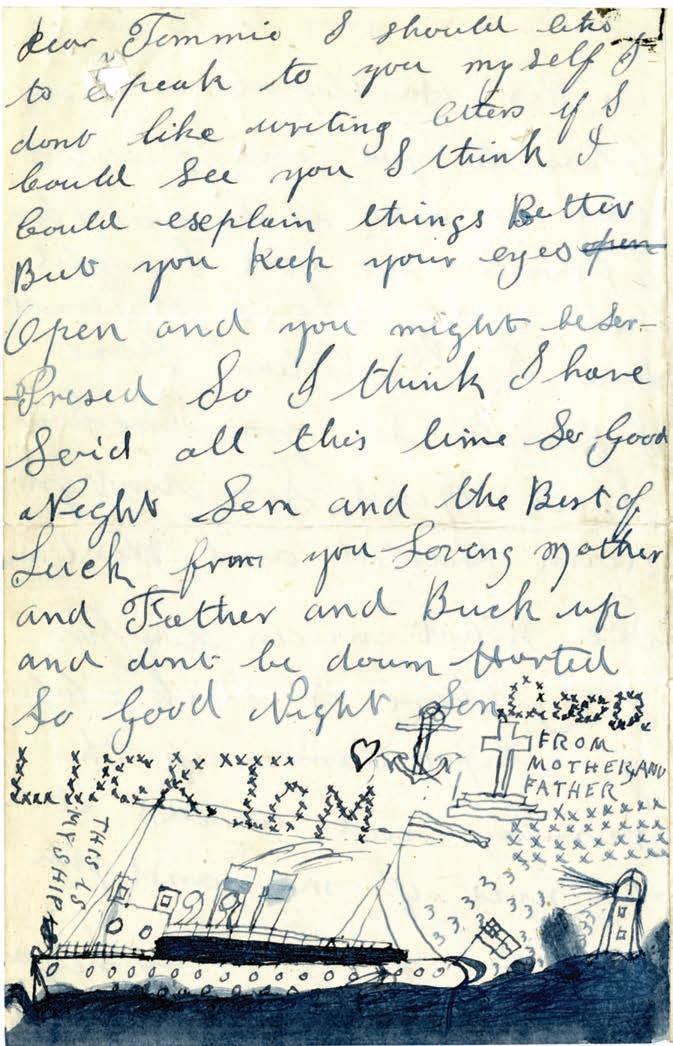 Dear Tommie I should like
to speak to you my self I
dont like writing letters if I
Could see you I think I
Could esplain things Better
But you keep your eyes open
Open and you might be Ser-
-Presed So I think I have
Seid all this time So Good
Night Son and the Best of
Luck from you Loving mother
and Father and Buck up
and dont be down Harted
So Good Night Son
GOOD
LUCK TOM
FROM
MOTHER, AND
FATHER
THIS IS
MY SHIP